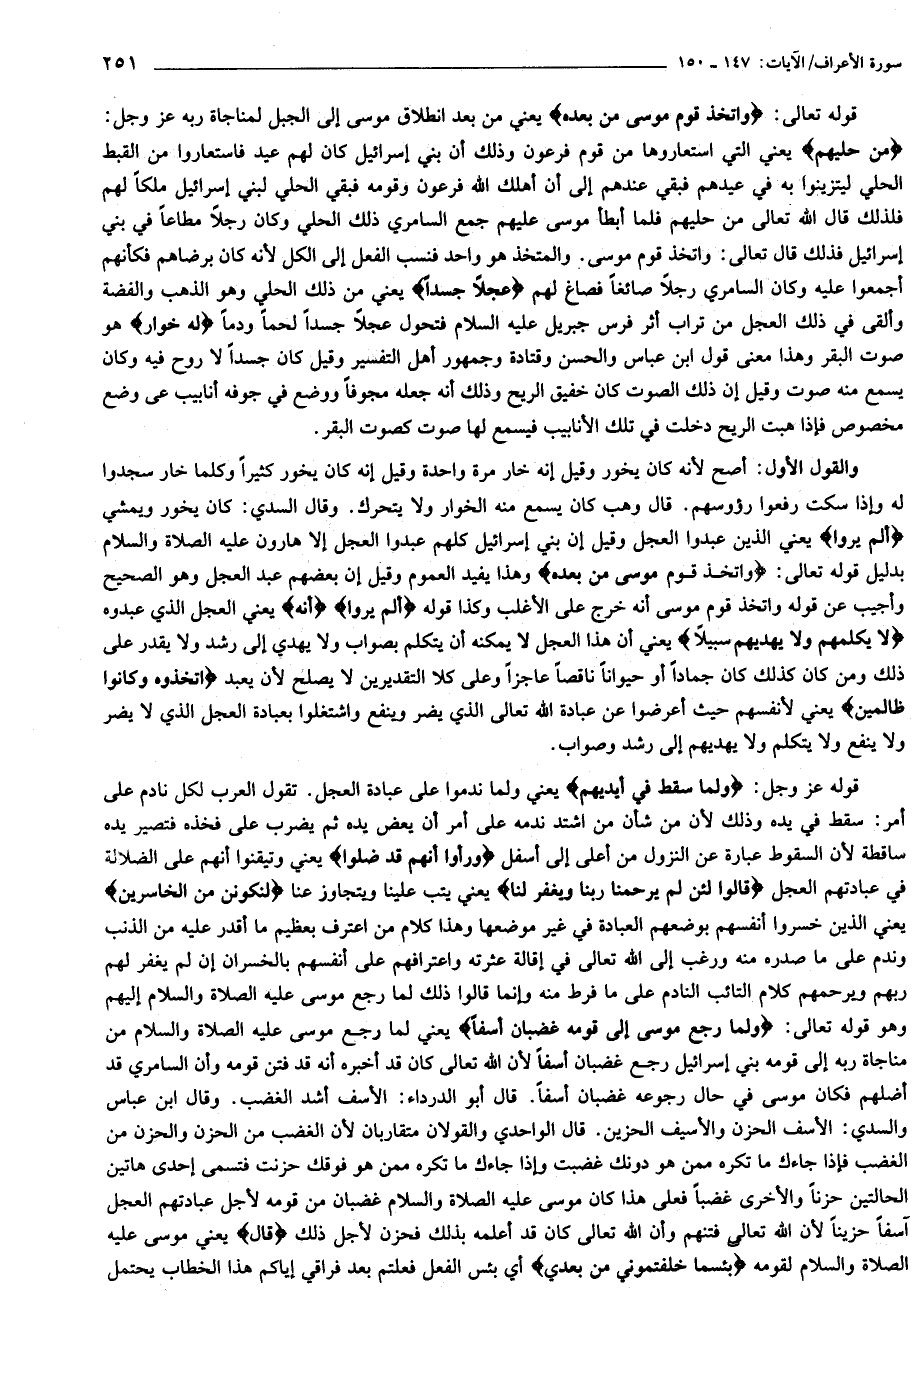 سورة الأعراف/ الآيات: ١٤٧ - ١٥٠ ٢٥١
قوله تعالى: ﴿واتخذ قوم موسى من بعده﴾ يعني من بعد انطلاق موسى إلى الجبل لمناجاة ربه عز وجل:
﴿من حليهم﴾ يعني التي استعاروها من قوم فرعون وذلك أن بني إسرائيل كان لهم عيد فاستعاروا من القبط
الحلي ليتزينوا به في عيدهم فبقي عندهم إلى أن أهلك الله فرعون وقومه فبقي الحلي لبني إسرائيل ملكاً لهم
فلذلك قال الله تعالى من حليهم فلما أبطأ موسى عليهم جمع السامري ذلك الحلي وكان رجلاً مطاعاً في بني
إسرائيل فذلك قال تعالى: واتخذ قوم موسى. والمتخذ هو واحد فنسب الفعل إلى الكل لأنه كان برضاهم فكأنهم
أجمعوا عليه وكان السامري رجلاً صائغاً فصاغ لهم ﴿عجلاً جسداً﴾ يعني من ذلك الحلي وهو الذهب والفضة
وألقى في ذلك العجل من تراب أثر فرس جبريل عليه السلام فتحول عجلاً جسداً لحماً ودماً ﴿له خوار﴾ هو
صوت البقر وهذا معنى قول ابن عباس والحسن وقتادة وجمهور أهل التفسير وقيل كان جسداً لا روح فيه وكان
يسمع منه صوت وقيل إن ذلك الصوت كان خفيق الريح وذلك أنه جعله مجوفاً ووضع في جوفه أنابيب عى وضع
مخصوص فإذا هبت الريح دخلت في تلك الأنابيب فيسمع لها صوت كصوت البقر.
والقول الأول: أصح لأنه كان يخور وقيل إنه خار مرة واحدة وقيل إنه كان يخور كثيراً وكلما خار سجدوا
له وإذا سكت رفعوا رؤوسهم. قال وهب كان يسمع منه الخوار ولا يتحرك. وقال السدي: كان يخور ويمشي
﴿ألم يروا﴾ يعني الذين عبدوا العجل وقيل إن بني إسرائيل كلهم عبدوا العجل إلا هارون عليه الصلاة والسلام
بدليل قوله تعالى: ﴿واتخذ قوم موسى من بعده﴾ وهذا يفيد العموم وقيل إن بعضهم عبد العجل وهو الصحيح
وأجيب عن قوله واتخذ قوم موسى أنه خرج على الأغلب وكذا قوله ﴿ألم يروا﴾ ﴿أنه﴾ يعني العجل الذي عبدوه
﴿لا يكلمهم ولا يهديهم سبيلاً﴾ يعني أن هذا العجل لا يمكنه أن يتكلم بصواب ولا يهدي إلى رشد ولا يقدر على
ذلك ومن كان كذلك كان جماداً أو حيواناً ناقصاً عاجزاً وعلى كلا التقديرين لا يصلح لأن يعبد ﴿اتخذوه وكانوا
ظالمين﴾ يعني لأنفسهم حيث أعرضوا عن عبادة الله تعالى الذي يضر وينفع واشتغلوا بعبادة العجل الذي لا يضر
ولا ينفع ولا يتكلم ولا يهديهم إلى رشد وصواب.
قوله عز وجل: ﴿ولما سقط في أيديهم﴾ يعني ولما ندموا على عبادة العجل. تقول العرب لكل نادم على
أمر: سقط في يده وذلك لأن من شأن من اشتد ندمه على أمر أن يعض يده ثم يضرب على فخذه فتصير يده
ساقطة لأن السقوط عبارة عن النزول من أعلى إلى أسفل ﴿ورأوا أنهم قد ضلوا﴾ يعني وتيقنوا أنهم على الضلالة
في عبادتهم العجل ﴿قالوا لئن لم يرحمنا ربنا ويغفر لنا﴾ يعني يتب علينا ويتجاوز عنا ﴿لنكونن من الخاسرين﴾
يعني الذين خسروا أنفسهم بوضعهم العبادة في غير موضعها وهذا كلام من اعترف بعظيم ما أقدر عليه من الذنب
وندم على ما صدره منه ورغب إلى الله تعالى في إقالة عثرته واعترافهم على أنفسهم بالخسران إن لم يغفر لهم
ربهم ويرحمهم كلام التائب النادم على ما فرط منه وإنما قالوا ذلك لما رجع موسى عليه الصلاة والسلام إليهم
وهو قوله تعالى: ﴿ولما رجع موسى إلى قومه غضبان أسفاً﴾ يعني لما رجع موسى عليه الصلاة والسلام من
مناجاة ربه إلى قومه بني إسرائيل رجع غضبان أسفاً لأن الله تعالى كان قد أخبره أنه قد فتن قومه وأن السامري قد
أضلهم فكان موسى في حال رجوعه غضبان أسفاً. قال أبو الدرداء: الأسف أشد الغضب. وقال ابن عباس
والسدي: الأسف الحزن والأسيف الحزين. قال الواحدي والقولان متقاربان لأن الغضب من الحزن والحزن من
الغضب فإذا جاءك ما تكره ممن هو دونك غضبت وإذا جاءك ما تكره ممن هو فوقك حزنت فتسمى إحدى هاتين
الحالتين حزناً والأخرى غضباً فعلى هذا كان موسى عليه الصلاة والسلام غضبان من قومه لأجل عبادتهم العجل
آسفاً حزيناً لأن الله تعالى فتنهم وأن الله تعالى كان قد أعلمه بذلك فحزن لأجل ذلك ﴿قال﴾ يعني موسى عليه
الصلاة والسلام لقومه ﴿بئسما خلفتموني من بعدي﴾ أي بئس الفعل فعلتم بعد فراقي إياكم هذا الخطاب يحتمل